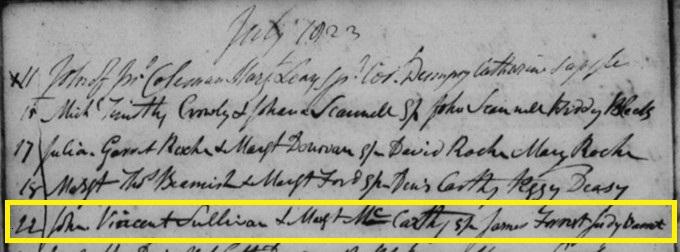 July 1823
x11 John of Jno. Coleman Margt Leary Sps. Cors. Dempsy Catharine
15 Michl Timothy Crowly & Johana Scannell Sps John Scannell Biddy
17 Julian Garret Roche & Margt Donovan Sps David Roche Mary Roche
18 Margt Thos Beamish & Margt Ford Sps Denis Carthy Peggy Deasy
22 John Vincent Sullivan & Margt McCarthy Sps James Forrest Judy Barret